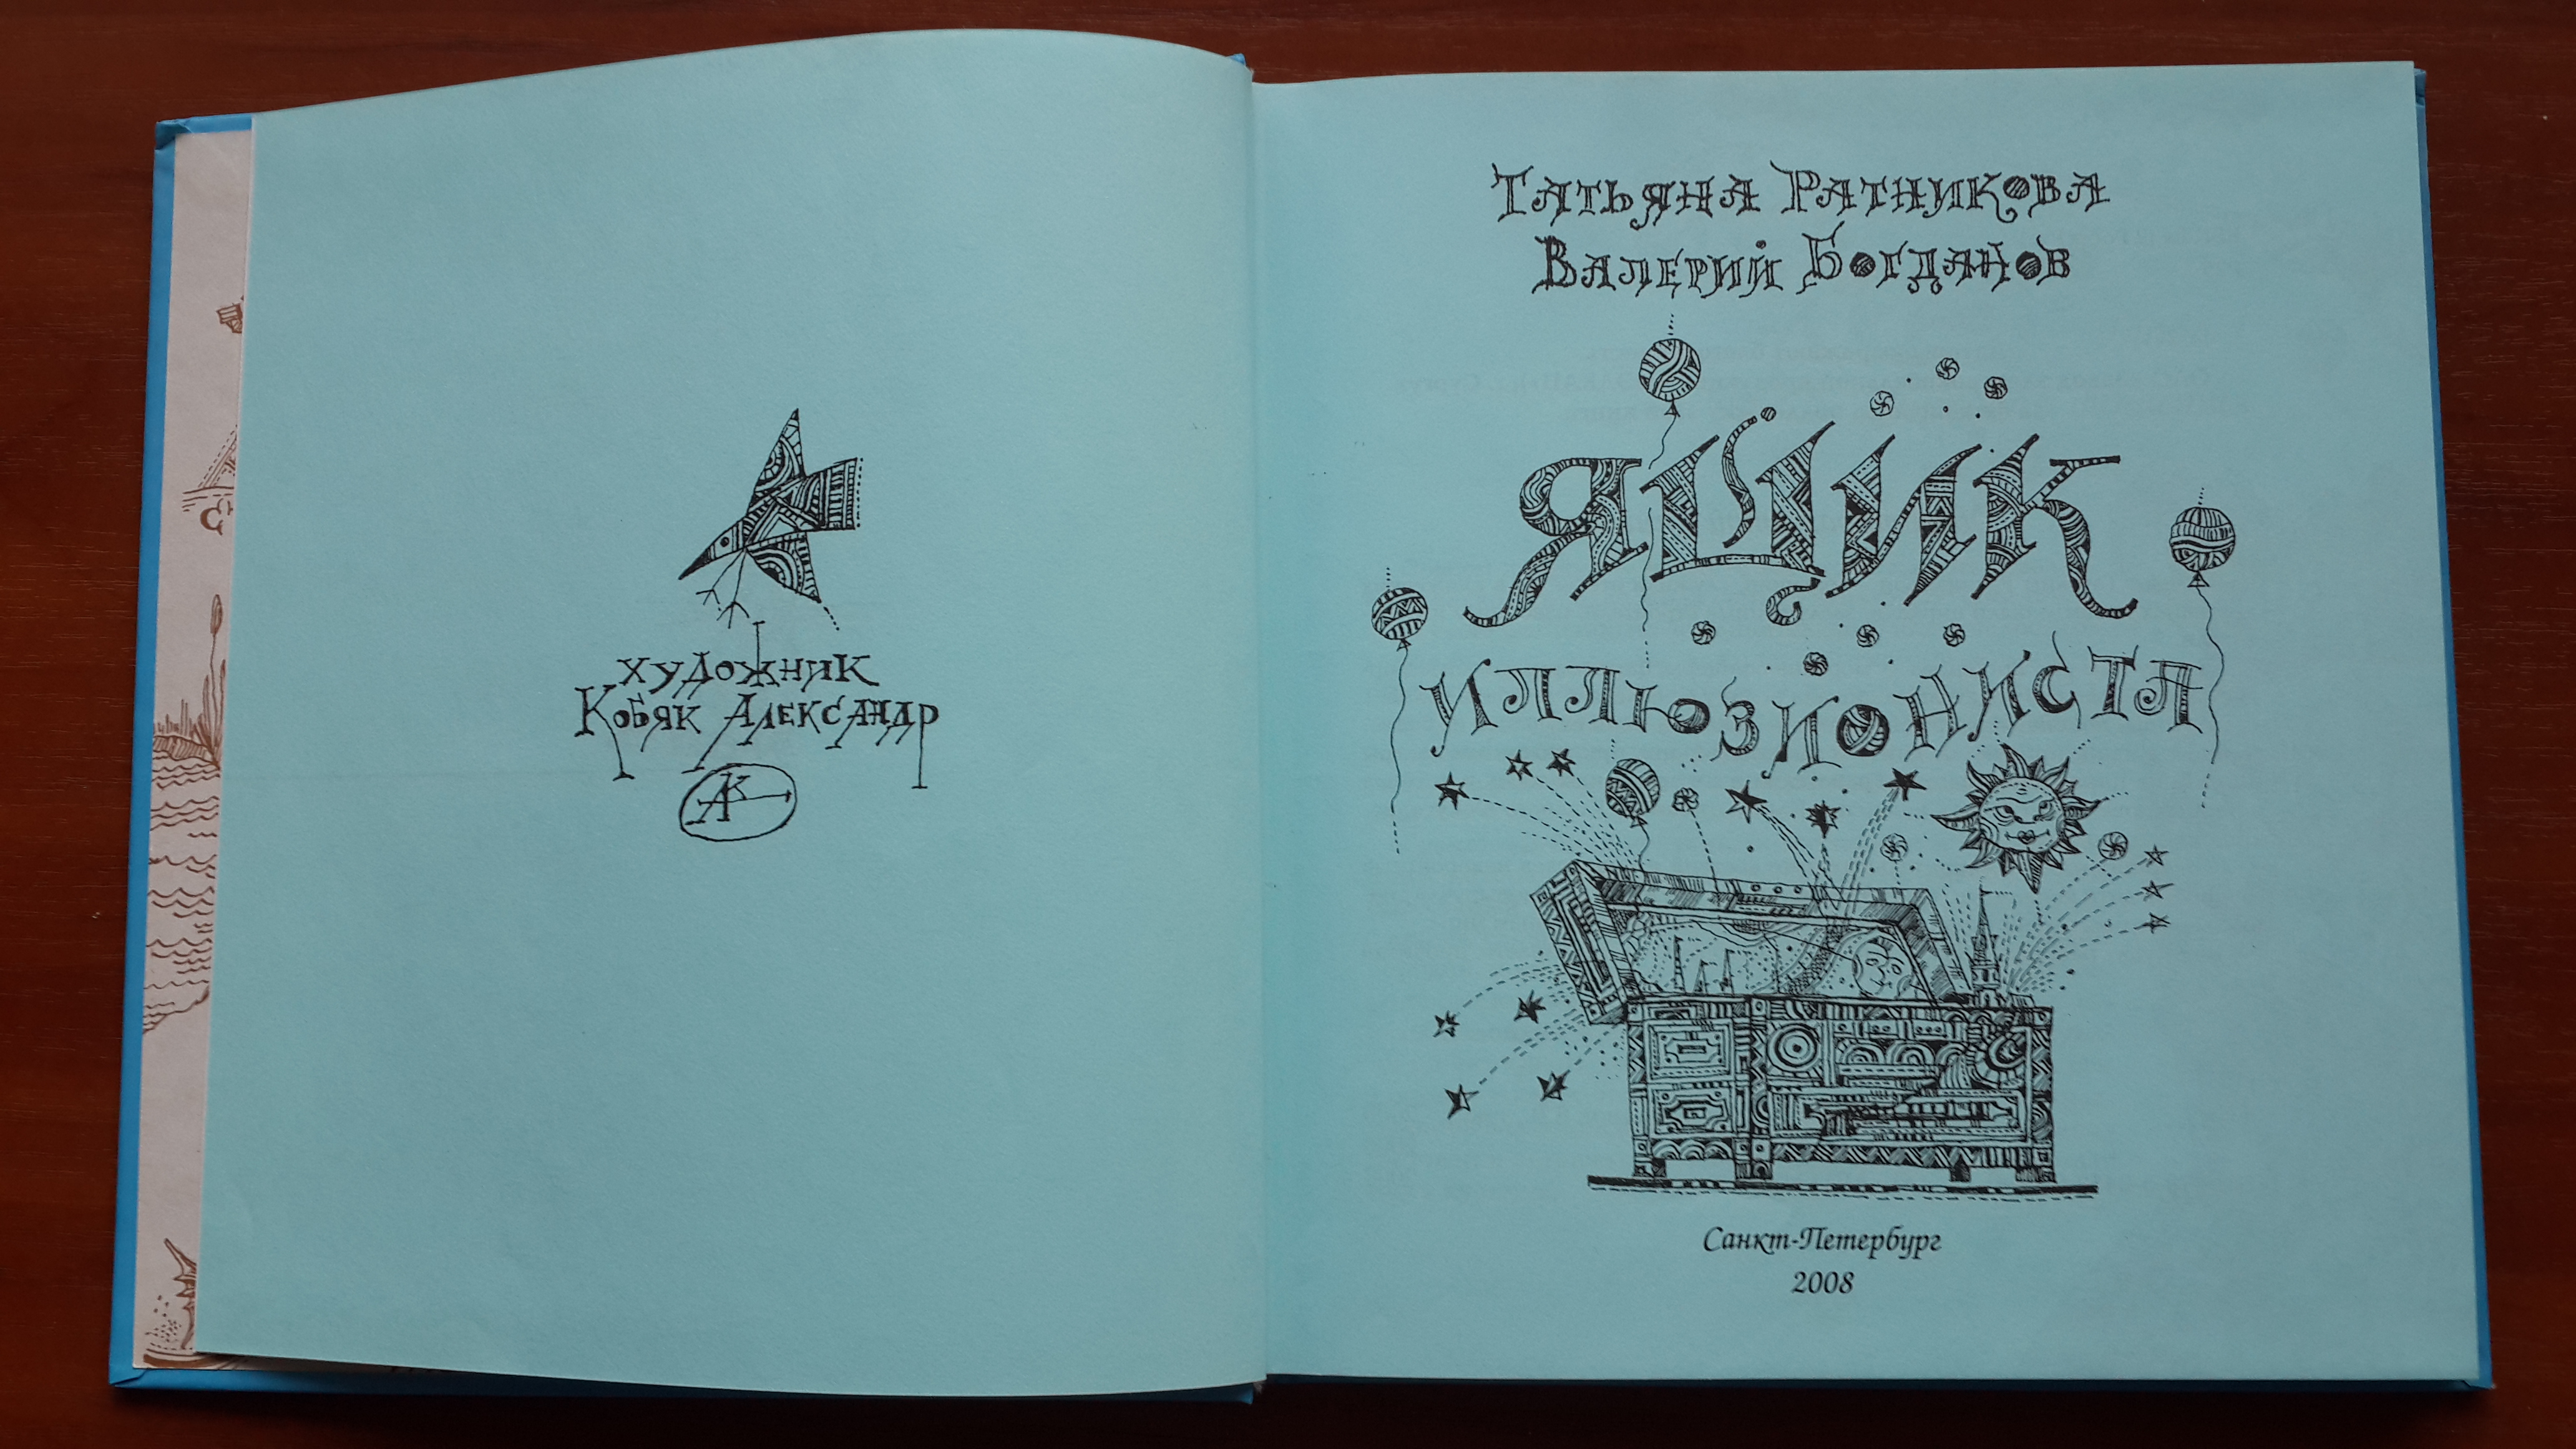 художник
Кобяк Александр
АК
Татьяна Ратникова
Валерий Богданов
Ящик
иллюзиониста
Санкт-Петербург
2008